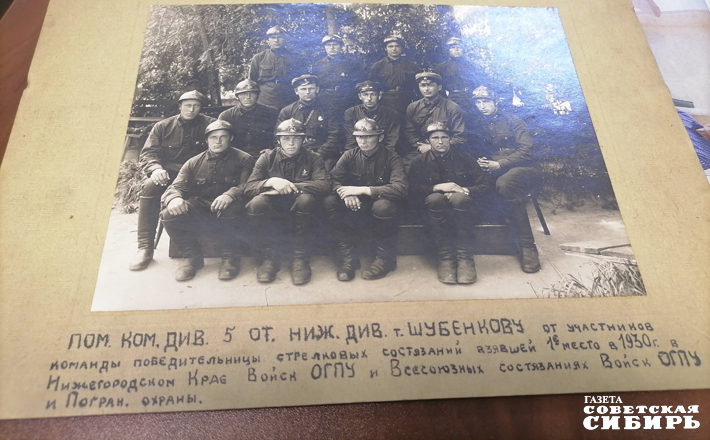 ПОМ. КОМ. ДИВ. 5 ОТ. НИЖ. ДИВ. т. ШУБЕНКОВУ ОТ УЧАСТНИКОВ
КОМАНДЫ ПОБЕДИТЕЛЬНИЦЫ СТРЕЛКОВЫХ СОСТЯЗАНИЙ ВЗЯВШЕЙ 1е МЕСТО В 1930г. В
НИЖЕГОРОДСКОМ КРАЕ ВОЙСК ОГПУ И ВСЕСОЮЗНЫХ СОСТЯЗАНИЯХ ВОЙСК ОГПУ
И ПОГРАН. ОХРАНЫ.
ГАЗЕТА
СОВЕТСКАЯ
СИБИРЬ